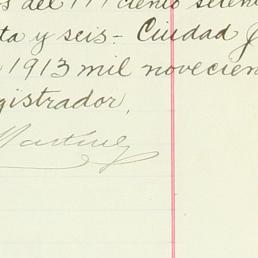 del 177 ciento seten
ta y seis - Ciudad J
1913 mil novecien
gistrador,
Martínez